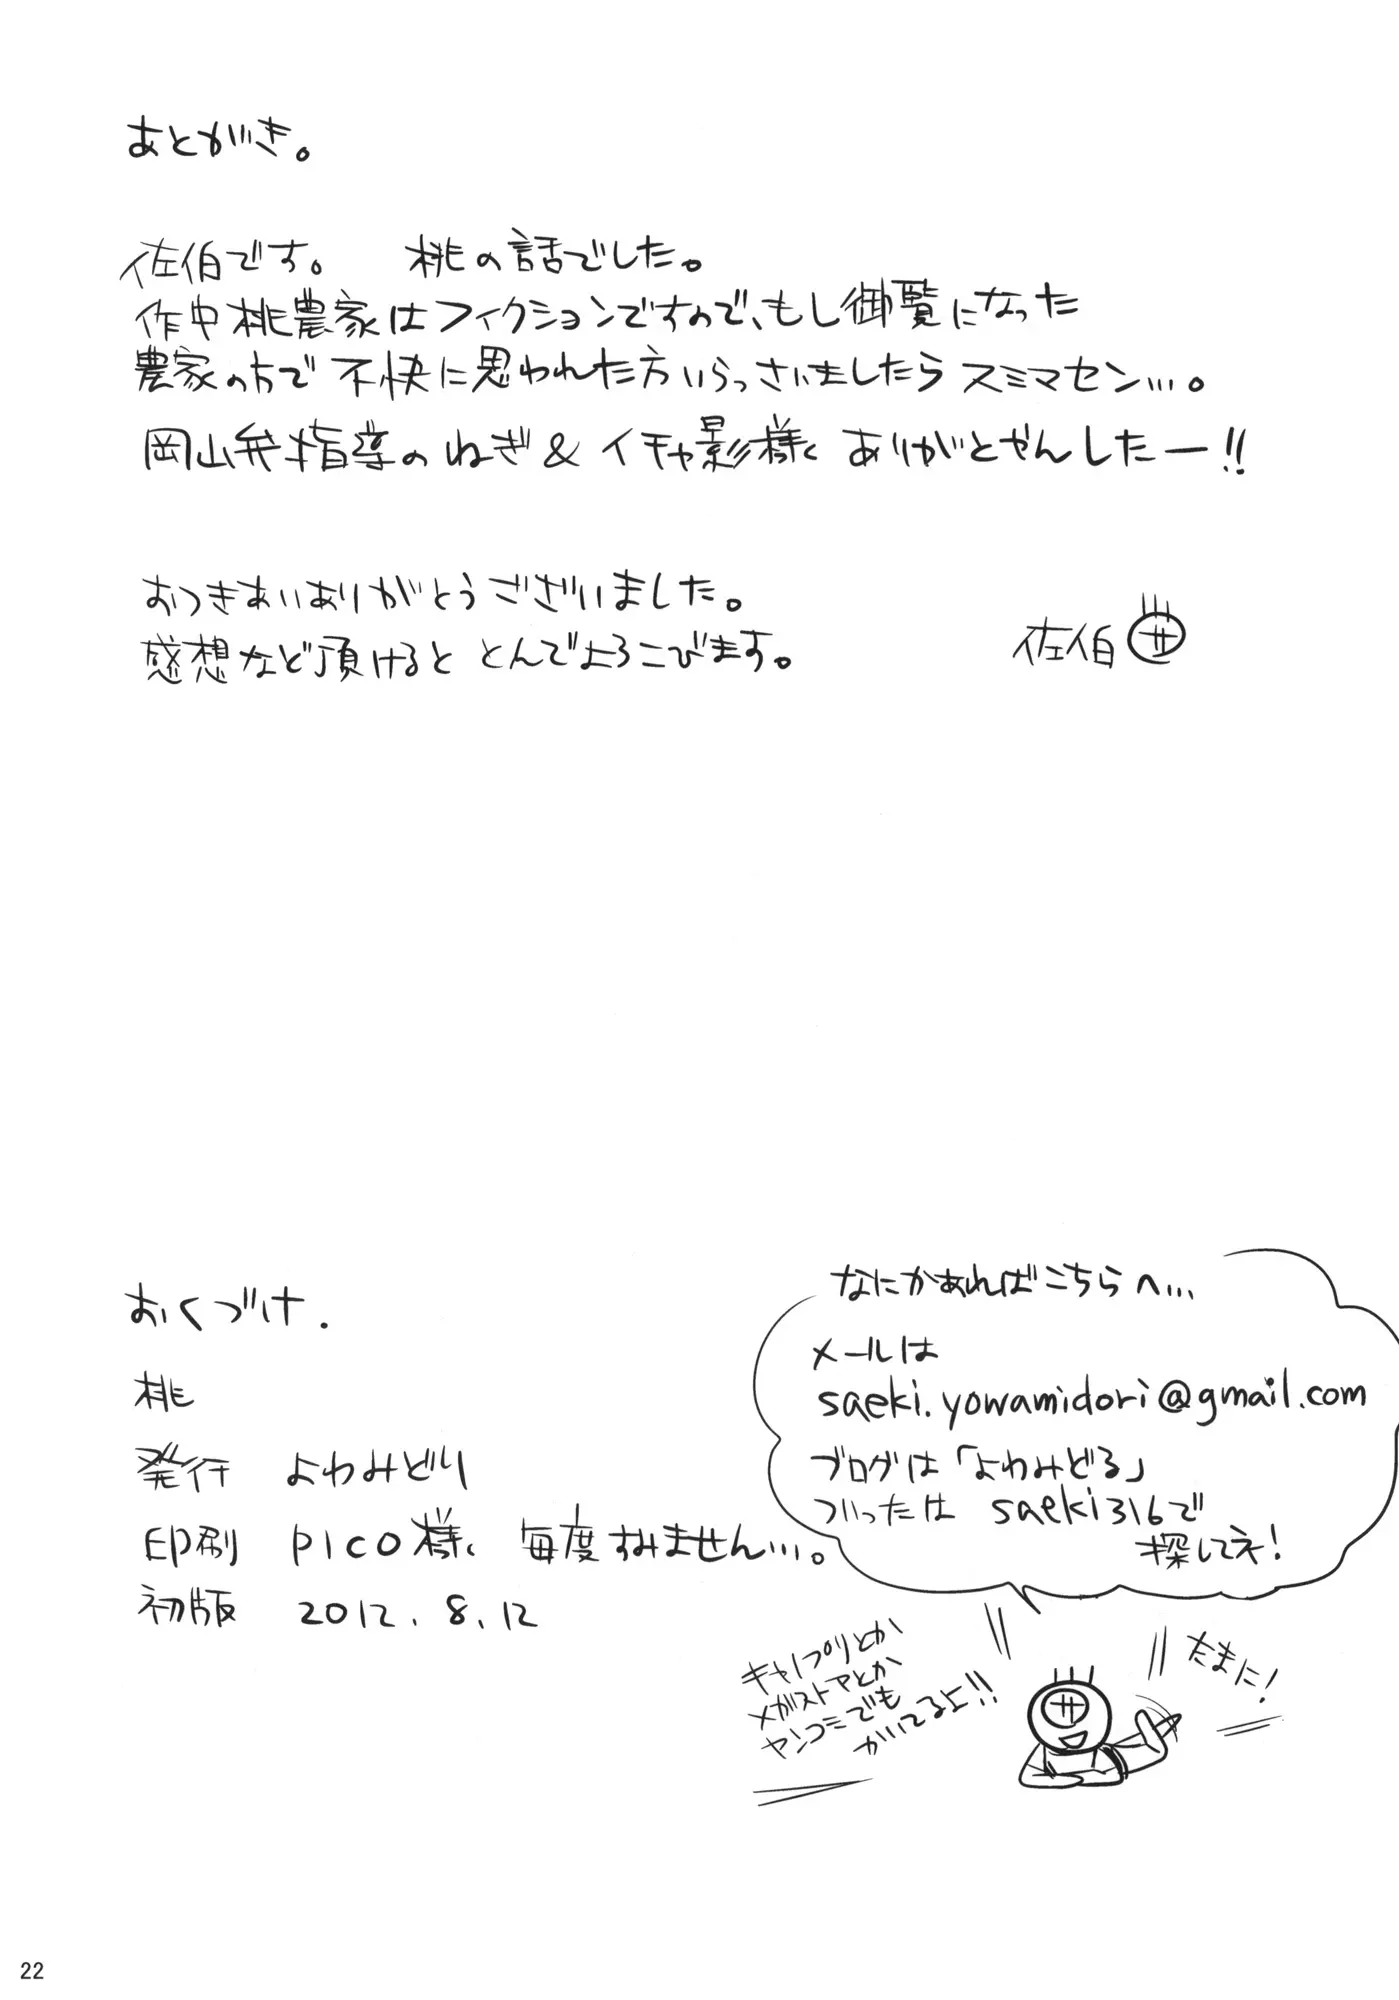 あとがき。
佐伯です。　桃の話でした。
作中桃農家はフィクションですので、もし御覧になった
農家の方で不快に思われた方いらっさいましたらスミマセン…。
岡山弁指導のねぎ&イチャ影様くありがとやんしたー!!
おつきあいありがとうございました。
感想など頂けるととんでよろこびます。
佐伯 サ
おくづけ.
桃
発行　よわみどり
印刷　pico様、毎度すみません…。
初版　2012.8.12
なにかあればこちらへ…
メールは
saeki.yowamidori@gmail.com
ブログは「よわみどる」
ついったは saeki316で
探してネ!
キャノプリとか
メガストアとか
ヤンコミでも
かいてるよ!!
たまに!
サ
22